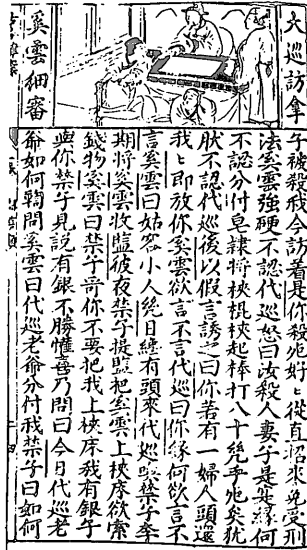 大巡訪拿
奚雲細審
子被殺我今訪着是你殺死好〻從直招來免受刑
法奚雲強硬不認代巡怒曰汝殺人妻子是緣何
不認分付皂隸將挾棍挾起棒打八十幾乎死矣犹
然不認代巡後以假言誘之曰你若有一婦人頭還
我〻即放你奚雲欲言不言代巡曰你緣何欲言不
言奚雲曰姑容小人幾日纏有頭來代巡與禁子
期將奚雲收監彼夜禁子提監把奚雲上挾床欲索
錢物奚雲曰禁子哥你不要把我上挾床我有銀子
與你禁子見說有銀不勝懽喜乃問曰今日代巡老
爺如何鞫問奚雲曰代巡老爺分付我禁子曰如何